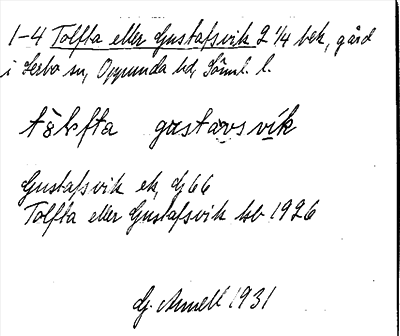 1-4 Tolfta eller Gustafsvik 2 1/4 bek, gård
i Lerbo sn, Oppunda hd, Söml. l.
tålfta gustavsvik
Gustafsvik ek, Gj 66
Tolfta eller Gustafsvik ksb 1926
G. Arnell 1931